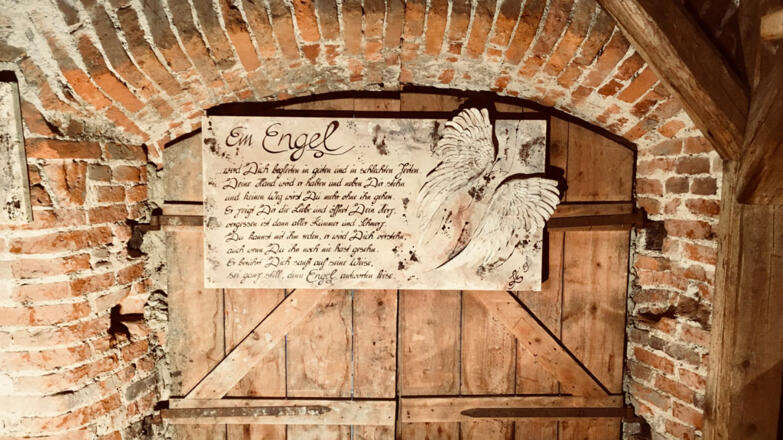 Ein Engel
wird Dich begleiten in guten und in schlechten Zeiten.
Deine Hand wird er halten und neben Dir stehn
und keinen Weg wirst Du mehr ohne ihn gehen.
Er zeigt Dir die Liebe und öffnet Dein Herz,
vergessen ist dann aller Kummer und Schmerz.
Du kannst mit ihm reden, er wird Dich verstehn,
auch wenn Du ihn noch nie hast gesehn.
Er berührt Dich sanft auf seine Weise,
sei ganz still, denn Engel antworten leise.